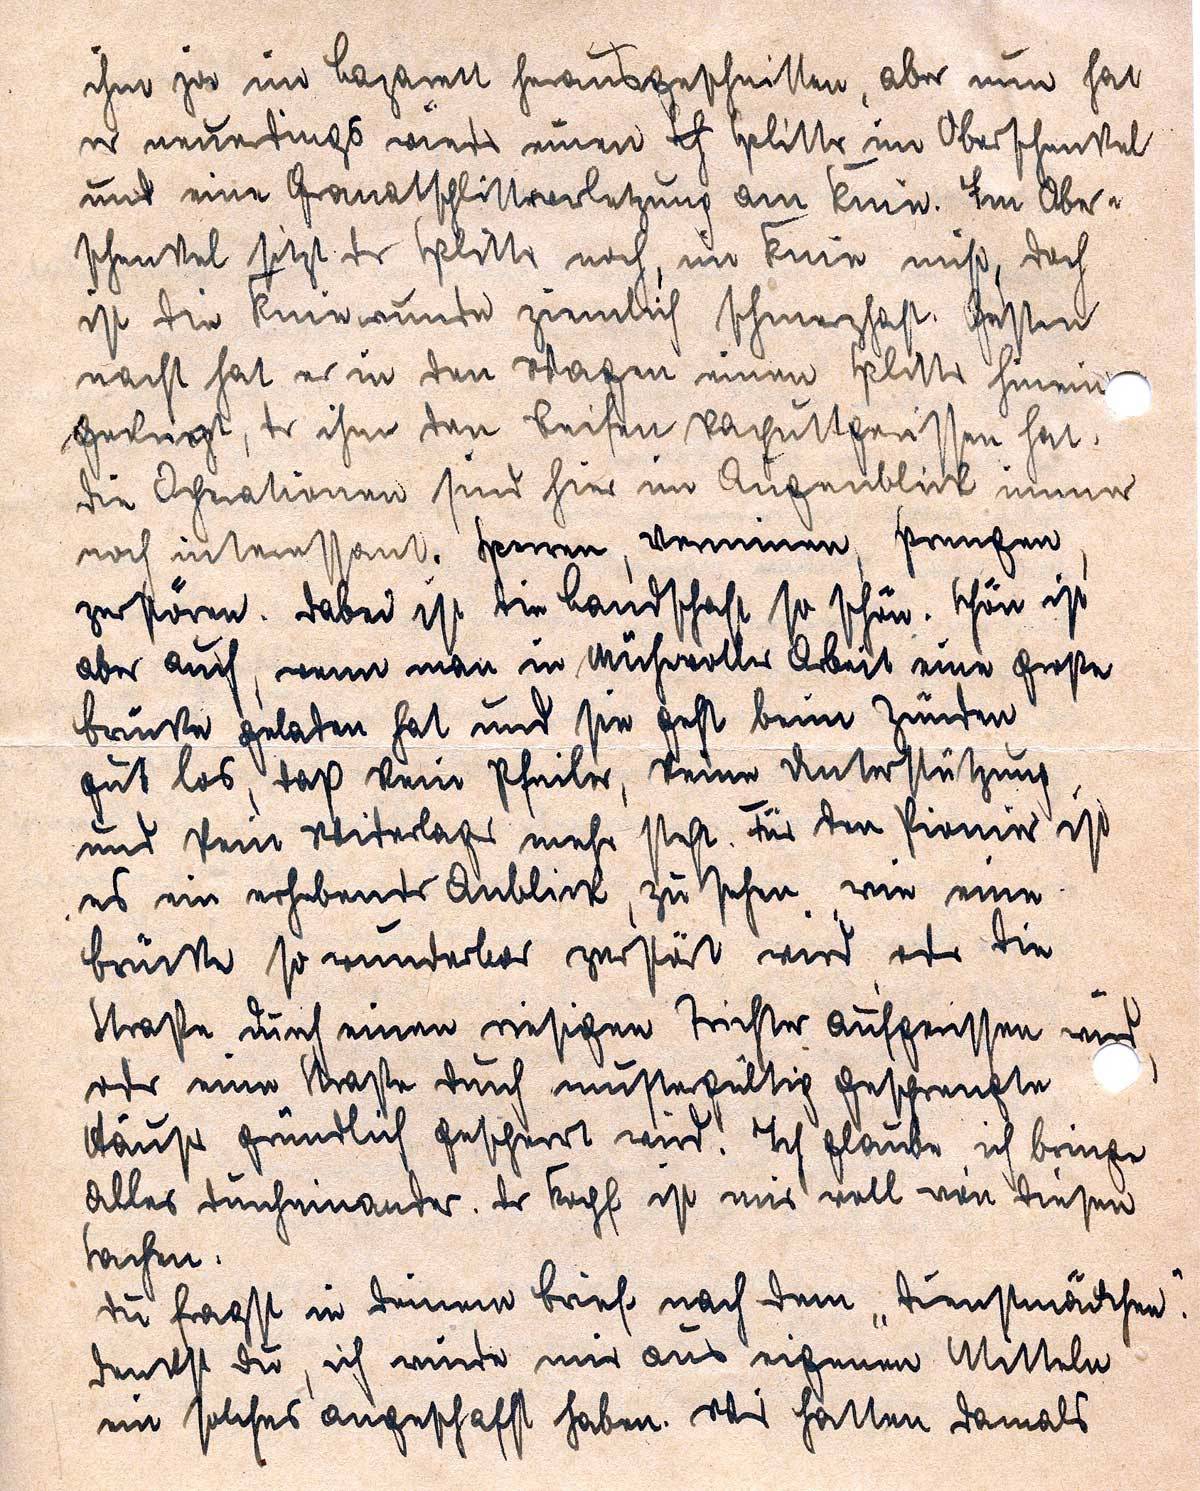 ihm ja im Lazarett herausgeschnitten, aber nun hat
er neuerdings wieder einen Splitter im Oberschenkel
und eine Granatsplitterverletzung am Knie. Im Ober-
schenkel sitzt der Splitter noch, im Knie nicht, doch
ist die Kniewunde ziemlich schmerzhaft. Gestern
nacht hat er in den Wagen einen Splitter hinein
gekriegt, der ihm den Reifen kaputtgerissen hat.
Die Operationen sind hier im Augenblick immer
noch interessant. Sperren, verminen, sprengen,
zerstören. Dabei ist die Landschaft so schön. Schön ist
aber auch, wenn man in mühevoller Arbeit eine große
Brücke geladen hat und sie geht beim Zünden
gut los, daß kein Pfeiler, keine Unterstützung
und kein Widerlager mehr steht. Für den Pionier ist
es ein erhebender Anblick, zu sehen, wie eine
Brücke so wunderbar zerstört wird, oder die
Straße durch einen riesigen Trichter aufgerissen wird,
oder eine Straße durch mustergültig gesprengte
Häuser gründlich gesperrt wird. Ich glaube ich bringe
Alles durcheinander. Der Kopf ist mir voll von diesen
Sachen.
Du fragst in Deinem Brief nach dem „Dienstmädchen".
Denkst Du, ich würde mir aus eigenen Mitteln
ein solches angeschafft haben. Wir hatten damals